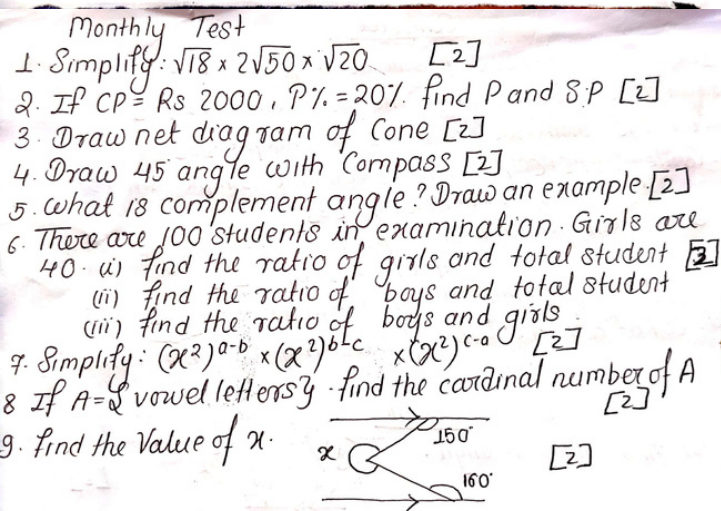 Monthly Test
1. Simplify: √18 x 2√50 x √20 [2]
2. If CP = Rs 2000, P% = 20%. find P and S.P [2]
3. Draw net diagram of Cone [2]
4. Draw 45 angle with Compass [2]
5. what is complement angle? Draw an example. [2]
6. There are 100 students in examination. Girls are
40. (i) find the ratio of girls and total student [3]
(ii) find the ratio of boys and total student
(iii) find the ratio of boys and girls.
7. Simplify: (x²)a-b x (x²)b-c x (x²)c-a [2]
8 If A = {vowel letters} . find the cardinal number of A
[2]
9. find the value of x. [2]
150°
x
160°